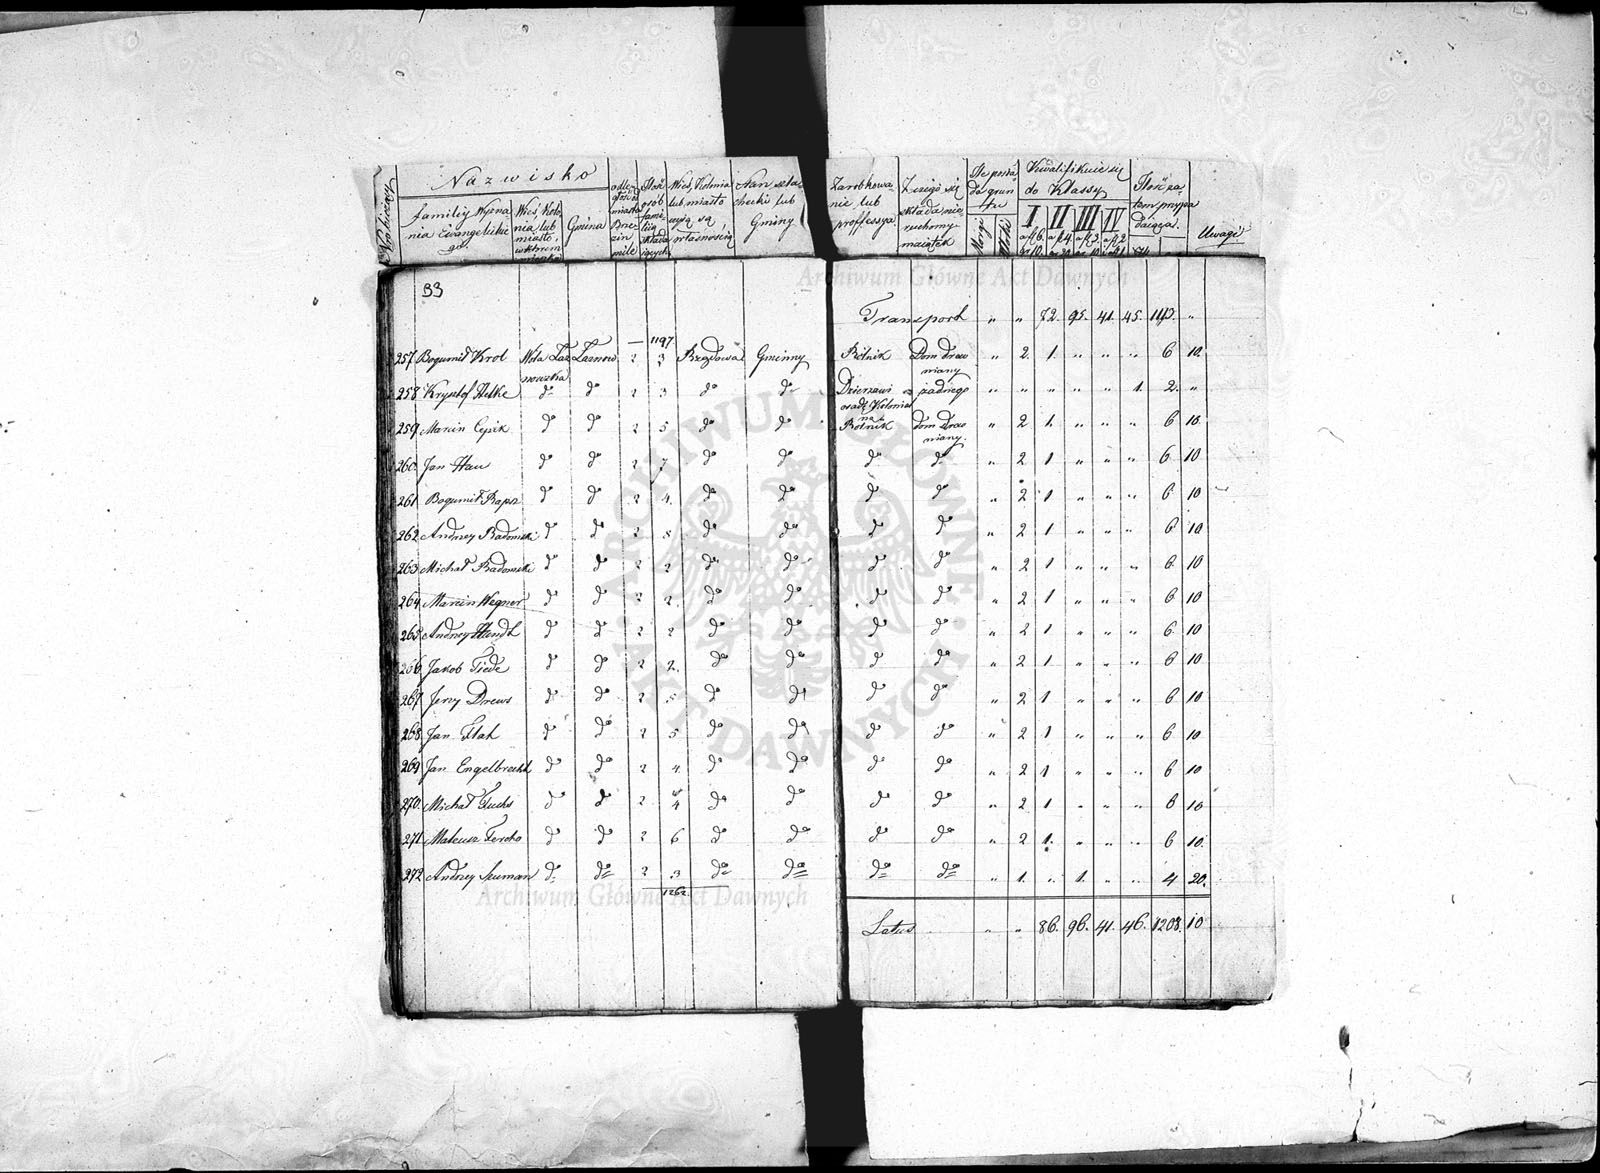 No bieżący
Nazwisko
familiy Wyzna
nia Ewangelickie
go
Wieś, Kolo
nia lub
miasto,
w którem
mieszka
Gmina
odle
głość od
miasta
Brze
zin
mile
Ilość
osob
fami
lią
składa
jących
Wieś, Kolonia
lub miasto
czyją są
własnością
Zarobkowa
nie lub
proffessya
Z czego się
składa nie
ruchomy
maiątek
Ile posia
da grun
tu
Morgi
Włoki
Kwalifikuie się
do Klassy
I II III IV
Ilość za
tem przypa
daiąca
Uwagi
33
Transport " " 72. 95. 41. 45. 1113. "
1197
257 Bogumił Krol Wola Łaz Łaznow 2 3 Rządowa Gminny Rolnik Dom drew " 2. 1. " " " 6 10.
nowska niany
258 Krysztof Helke do do 2 3 do do Dzierzawi żadnego " " " " " 1. 2. "
osadę Kolonial
na
259 Marcin Cepik do do 2 5 do do Rolnik dom Drew " 2 1. " " " 6 10.
niany
260 Jan Hau do do 2 7 do do do do " 2 1 " " " 6 10
261 Bogumił Rapz do do 2 4. do do do do " 2 1 " " " 6 10
262 Andrzey Radomski do do 2 8 do do do do " 2 1 " " " 6 10
263 Michał Radomski do do 2 2 do do do do " 2 1 " " " 6 10
264 Marcin Wegner do do 2 2 do do do do " 2 1 " " " 6 10
265 Andrzey Hendt do do 2 2 do do do do " 2 1 " " " 6 10
266 Jakob Tiede do do 2 2. do do do do " 2 1 " " " 6 10
267 Jerzy Drews do do 2 5 do do do do " 2 1 " " " 6 10
268 Jan Flah do do 2 5 do do do do " 2 1 " " " 6 10
269 Jan Engelbrecht do do 2 4 do do do do " 2 1 " " " 6 10
270 Michał Fuchs do do 2 4 do do do do " 2 1 " " " 6 10
271 Mateusz Fercho do do 2 6 do do do do " 2 1. " " " 6 10.
272 Andrzey Szuman do do 2 3 do do do do " 1. " 1. " " 4 20.
1262
Latus " " 86. 96. 41. 46. 1208. 10
Archiwum Główne Akt Dawnych
Archiwum Główne Akt Dawnych
ARCHIWUM GŁÓWNE AKT DAWNYCH